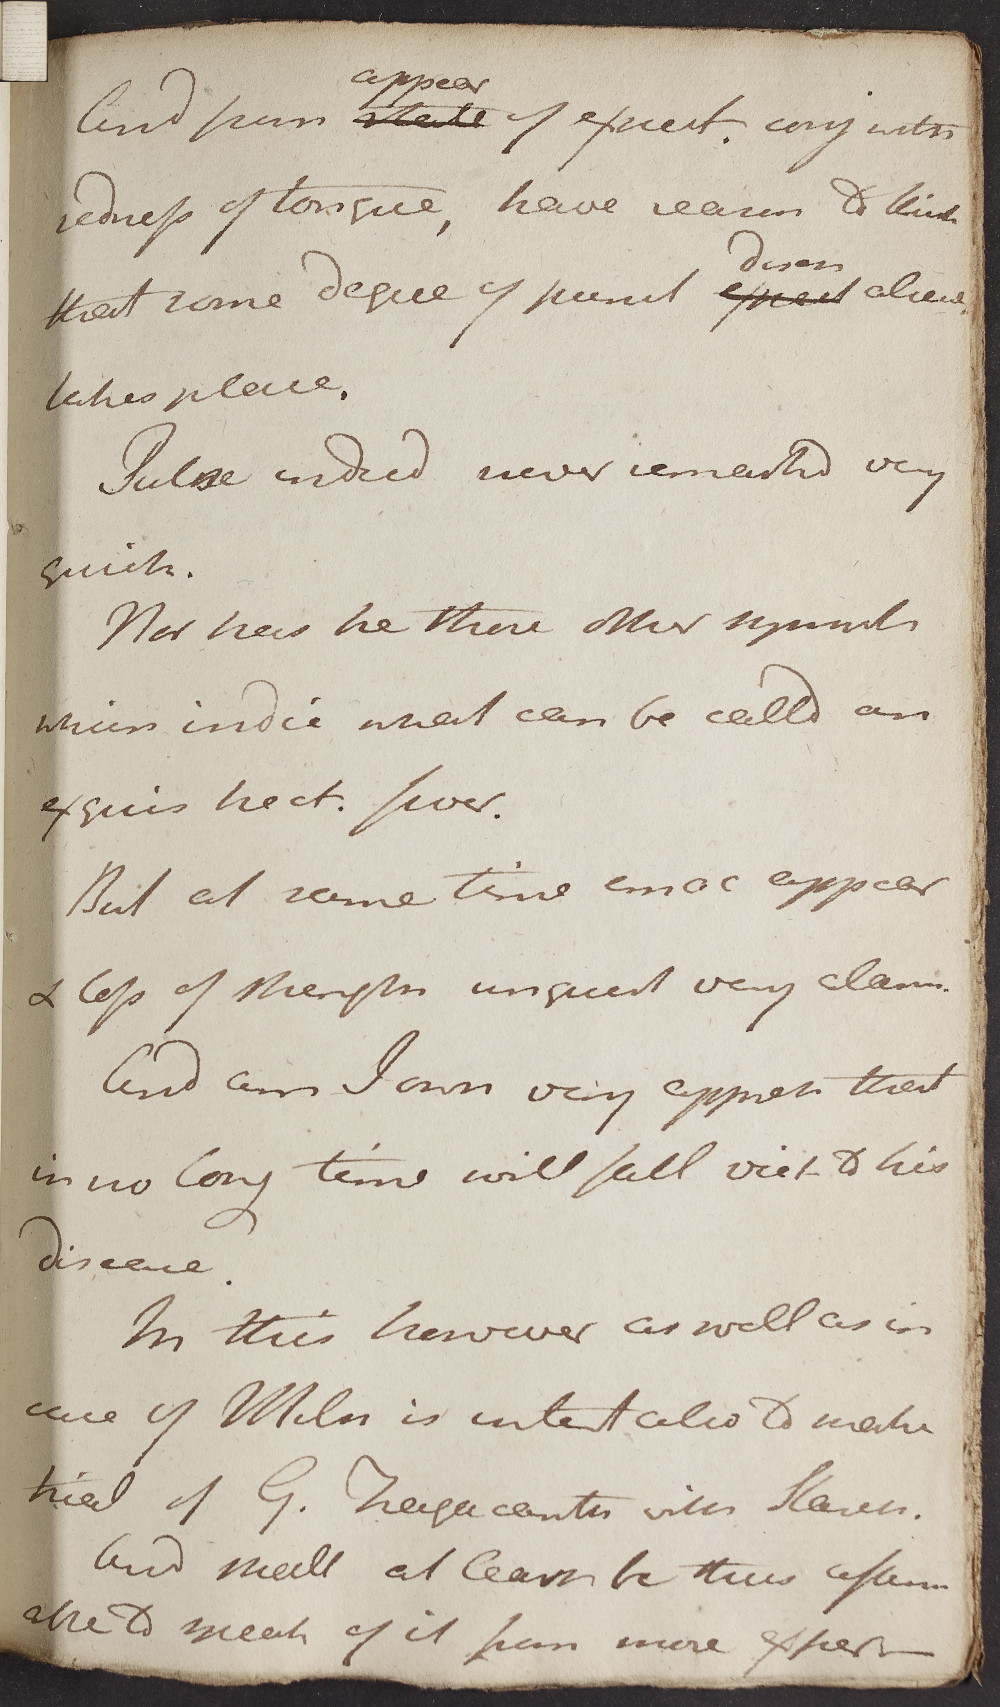 appear
And from state of expect. conj with
redness of tongue, have reason to think
disch
that some degree of purul expect alread
takes place.
Pulse indeed never remarkd very
quick.
Nor has he those other sympt
which indic what can be calld an
exquis hect. fever.
But at same time emac appear
& loss of strength unquest very alarm.
And am I own very appreh that
in no long time will fall vict to his
disease.
In this however as well as in
case of Miln is intent also to make
trial of G. Tragacanth with Starch.
And shall at least be thus
able to speak of it from more exper